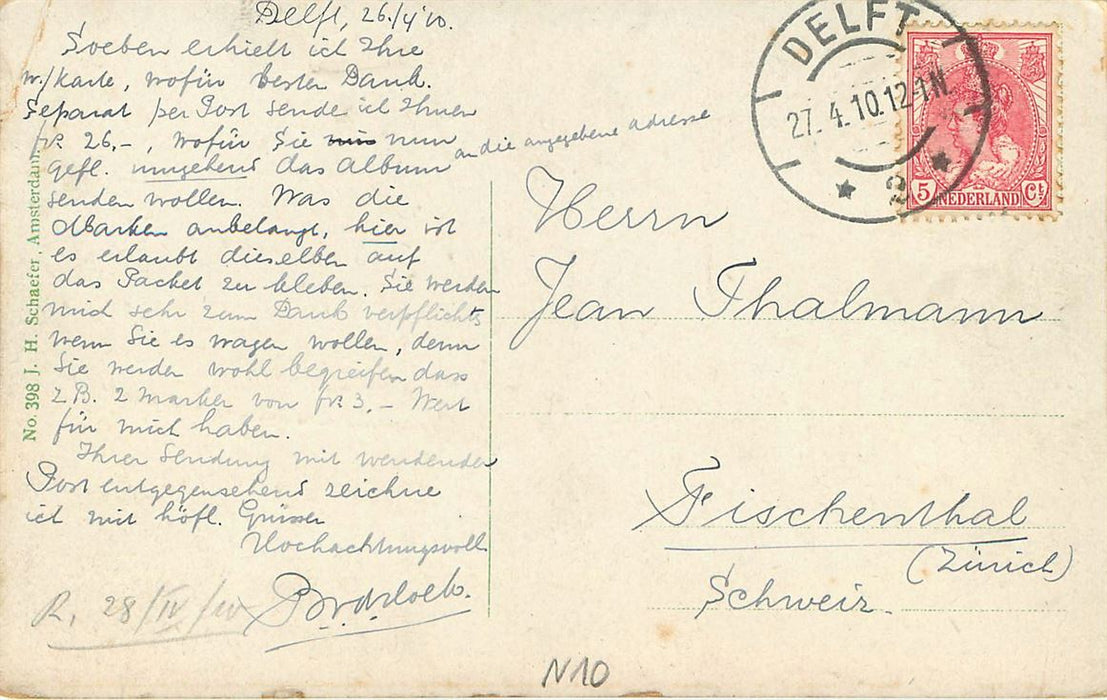 Delft, 26./4 '10.
Soeben erhielt ich Ihre
w./Karte, wofür besten Dank.
Separat per Post sende ich Ihnen
fr. 26,-, wofür Sie nun
gefl. umgehend das Album an die angegebene Adresse
senden wollen. Was die
Marken anbelangt, hier ist
es erlaubt dieselben auf
das Packet zu kleben. Sie werden
mich sehr zum Dank verpflichten
wenn Sie es wagen wollen, denn
Sie werden wohl begreifen dass
z.B. 2 Marken von fr. 3,- Wert
für mich haben.
Ihrer Sendung mit wendender
Post entgegensehend zeichne
ich mit höfl. Grüssen
Hochachtungsvoll
R. 28/IV/10
Herrn
Jean Thalmann
Fischenthal
(Zürich)
Schweiz.
DELFT
27. 4. 10. 12-1N
2
5 NEDERLAND Ct.
No. 398 J. H. Schaefer, Amsterdam.
N10